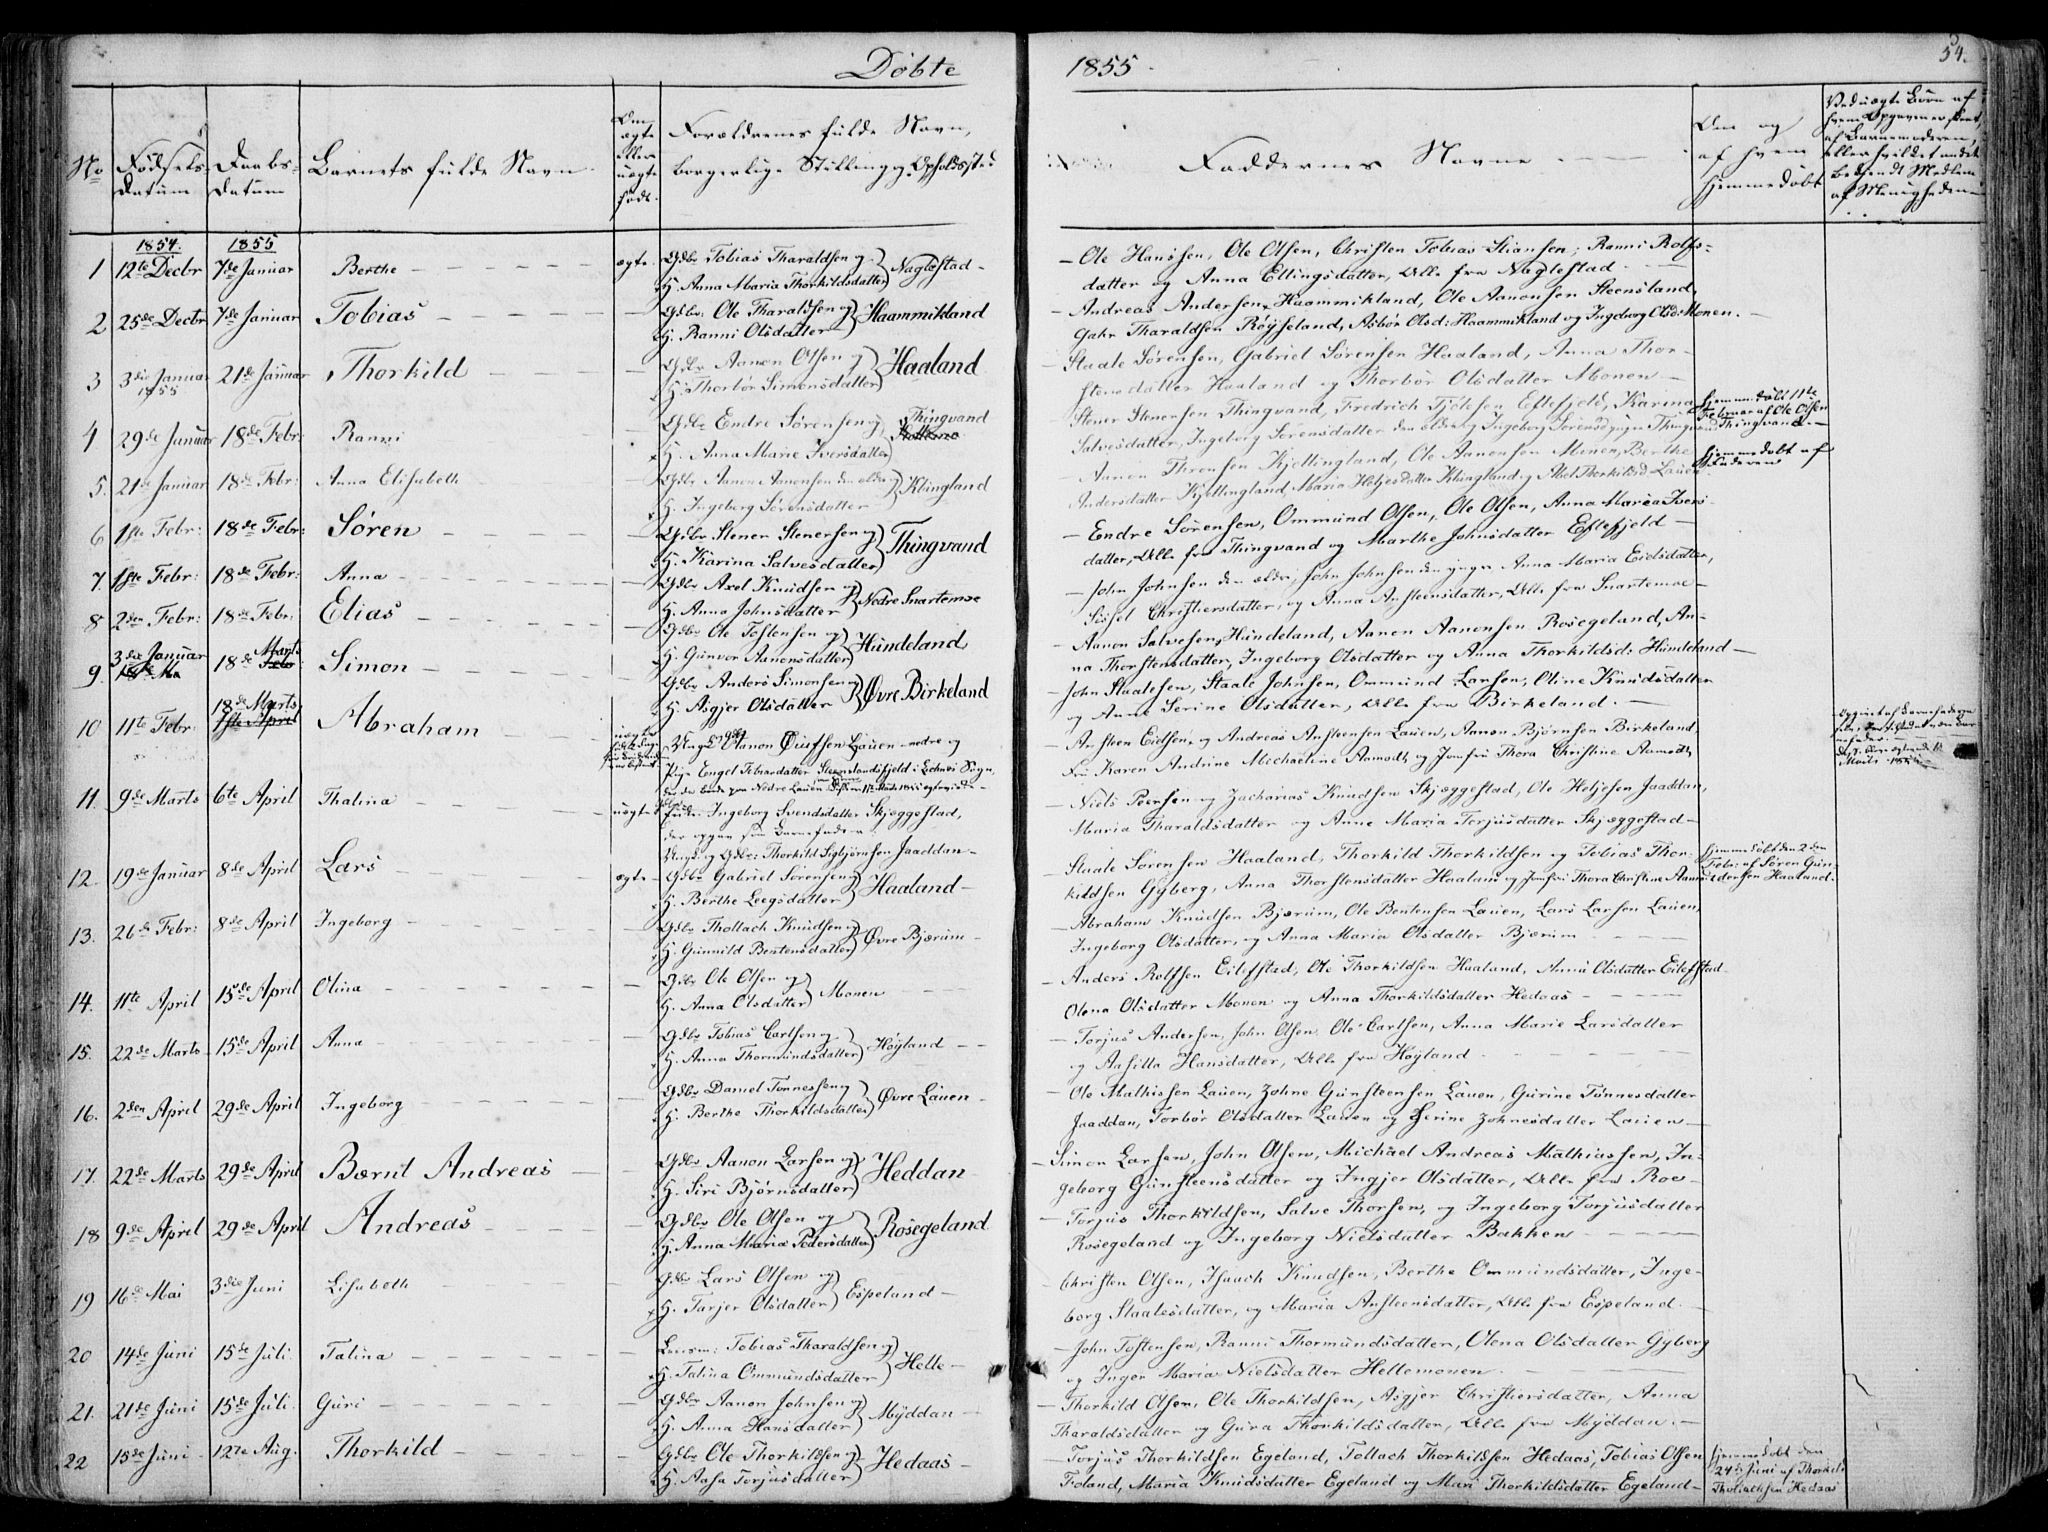 Døbte
1855
54.
No
Fødsels-
Datum
Daabs-
Datum
Barnets fulde Navn
Om
ægte
eller
uægte
født.
Forældrenes fulde Navn,
borgerlige Stilling og Opholdssted
Faddernes Navne
Om og
af hvem
hjemmedøbt
1854. 1855
1 12te Decbr 7de Januar Berthe ægte Gdbr Tobias Tharaldsen og
H. Anna Maria Thorkildsdatter Naglestad
Ole Hansen, Ole Olsen, Christen Tobias Stiansen, Ranni Rolfs-
datter og Anna Ellingsdatter, Alle fra Naglestad
2 25de Decbr 7de Januar Tobias Gdbr. Ole Tharaldsen og
H. Ranni Olsdatter Haammikland
Andreas Andersen Haammikland, Ole Aanonsen Steensland,
Gahr Tharaldsen Røyseland, Asbør Olsd: Haammikland og Ingeborg Olsd: Monen.
3 3die Januar 1855 21de Januar Thorkild Gdbr Aanon Olsen og
H. Thorbør Simensdatter Haaland
Staale Sørensen, Gabriel Sørensen Haaland, Anna Thor-
stensdatter Haaland og Thorbør Olsdatter Monen
4 29de Januar 18de Febr: Ranni Gdbr Endre Sørensen og
H. Anna Marie Iversdatter Thingvand
Stener Stenersen Thingvand, Fredrich Tjølsen Eftefjeld, Karina
Salvesdatter, Ingeborg Sørensdatter den eldre og Ingeborg Sørensd yngre Thingvand
Hjemmedøbt 11te
Februar af Ole Olsen
Thingvand.
5. 21de Januar 18de Febr: Anna Elisabeth Gdbr Aanon Aanonsen den eldre og
H. Ingeborg Sørensdatter Klungland
Aanon Thronsen Kjellingland, Ole Aanonsen Monen, Berthe
Andersdatter Kjellingland, Maria Heljesdatter Klungland og Abel Thorkildsd Lauen
Hjemmedøbt af
Faderen
6 1ste Febr: 18de Febr: Søren Gdbr Stener Stenersen og
H. Karina Salvesdatter Thingvand
Endre Sørensen, Ommund Olsen, Ole Olsen, Anna Maria Ivers-
datter, Alle fra Thingvand og Marthe Johnsdatter Eftefjeld
7. 1ste Febr: 18de Febr: Anna Gdbr Axel Knudsen og
H. Anna Johnsdatter Nedre Snartemoe
John Johnsen den eldre, John Johnsen den yngre Anna Maria Eidsdatter,
Sissel Christiersdatter, og Anna Ansteensdatter, Alle fra Snartemoe
8 2den Febr: 18de Febr: Elias Gdbr Ole Tostensen og
H. Gunvor Aanonsdatter Hundeland
Aanon Salvesen Hundeland, Aanen Aanonsen Rosegeland, An-
na Thorstensdatter, Ingeborg Olsdatter og Anna Thorkildsd: Hundeland
9. 3die Januar 18de Marts Simon Gdbr Anders Simonsen og
H. Asgjer Olsdatter Øvre Birkeland
John Staalesen, Staale Johnsen, Ommund Larsen, Oline Knudsdatter
og Anne Serine Olsdatter, Alle fra Birkeland.
10 11te Febr: 18de Marts 1ste April Abraham uægte Ungk Aanon Lauen nedre og
Pige Engel Tobiasdatter Steenslandsfjeld i Sogn,
Ansteen Eidsen, og Andreas Ansteensen Lauen, Aanon Bjørnsen Birkeland,
Fru Karen Andrine Michaeline Aamodt og Jomfru Thora Christine Aamodt
11. 9de Marts 6te April Thalina uægte Pige Ingeborg Svendsdatter Skjeggestad,
der opgav som Barnefader
Ungk og Gdbr: Thorkild Sigbjørnsen Jaaddan
Niels Peersen og Zacharias Knudsen Skjæggestad, Ole Heljesen Jaaddan,
Maria Tharaldsdatter og Anne Maria Torjusdatter Skjæggestad
12. 19de Januar 8de April Lars ægte Gdbr Gabriel Sørensen og
H. Berthe Leegsdatter Haaland
Staale Sørensen Haaland, Thorkild Thorkildsen og Tobias Thor-
kildsen Gyberg, Anna Thorstensdatter Haaland og Jomfru Thora Christine Aamodt
Hjemmedøbt den 2den
Febr: af Søren Gun-
dersen Haaland.
13. 26de Febr: 8de April Ingeborg Gdbr Thollach Knudsen og
H. Gunvild Bentensdatter Øvre Bjærum
Abraham Knudsen Bjærum, Ole Bentensen Lauen, Lars Larsen Lauen,
Ingeborg Olsdatter, og Anna Maria Olsdatter Bjærum
14. 11te April 15de April Olina Gdbr Ole Olsen og
H. Anna Olsdatter Monen
Anders Rolfsen Eilefstad, Ole Thorkildsen Haaland, Anna Olsdatter Eilefstad
Olena Olsdatter Monen og Anna Thorkildsdatter Hedaas
15. 22de Marts 15de April Anna Gdbr Tobias Carlsen og
H. Anna Thormundsdatter Høyland
Torjus Andersen, John Olsen, Ole Carlsen, Anna Marie Larsdatter
og Aasilla Hansdatter, Alle fra Høyland
16. 2den April 29de April Ingeborg Gdbr Daniel Tønnessen og
H. Berthe Thorkildsdatter Øvre Lauen
Ole Mathissen Lauen, Zohne Gunsteensen Lauen, Gurine Tønnesdatter
Jaaddan, Torbør Olsdatter Lauen og Serine Zohnesdatter Lauen
17. 22de Marts 29de April Bærnt Andreas Gdbr Aanon Larsen og
H. Siri Bjørnsdatter Heddan
Simon Larsen, John Olsen, Michael Andreas Mathiassen, In-
geborg Gunsteensdatter og Ingjer Olsdatter, Alle fra Roe
18 9de April 29de April Andreas Gdbr Ole Olsen og
H. Anna Maria Pedersdatter Rosegeland
Torjus Thorkildsen, Salve Thorsen, og Ingeborg Torjusdatter
Rosegeland og Ingeborg Nielsdatter Bakken
19 16de Mai 3die Juni Lisabeth Gdbr Lars Olsen og
H. Tarjer Olsdatter Espeland
Christen Olsen, Isaach Knudsen, Berthe Ommundsdatter, Inge-
borg Staalesdatter, og Maria Ansteensdatter, Alle fra Espeland.
20 14de Juni 15de Juli Talina Lensm: Tobias Tharaldsen og
H. Talina Ommundsdatter Helle
John Tostensen, Ranni Thormundsdatter, Olena Olsdatter Gyberg
og Inger Maria Nielsdatter Hellemonen
21. 21de Juni 15de Juli. Guri Gdbr Aanon Johnsen og
H. Anna Hansdatter Myddan
Thorkild Olsen, Ole Thorkildsen, Asgjer Christiersdatter, Anna
Tharaldsdatter og Gura Thorkildsdatter, Alle fra Myddan.
22 15de Juni 12te Aug. Thorkild Gdbr Ole Thorkildsen og
H. Aasa Torjusdatter Hedaas
Torjus Thorkildsen Egeland, Tollach Thorkildsen Hedaas, Tobias Olsen
Foland, Maria Knudsdatter Egeland og Mari Thorkildsdatter Egeland
Hjemmedøbt den
24de Juni af Thorkild
Thollachsen Hedaas